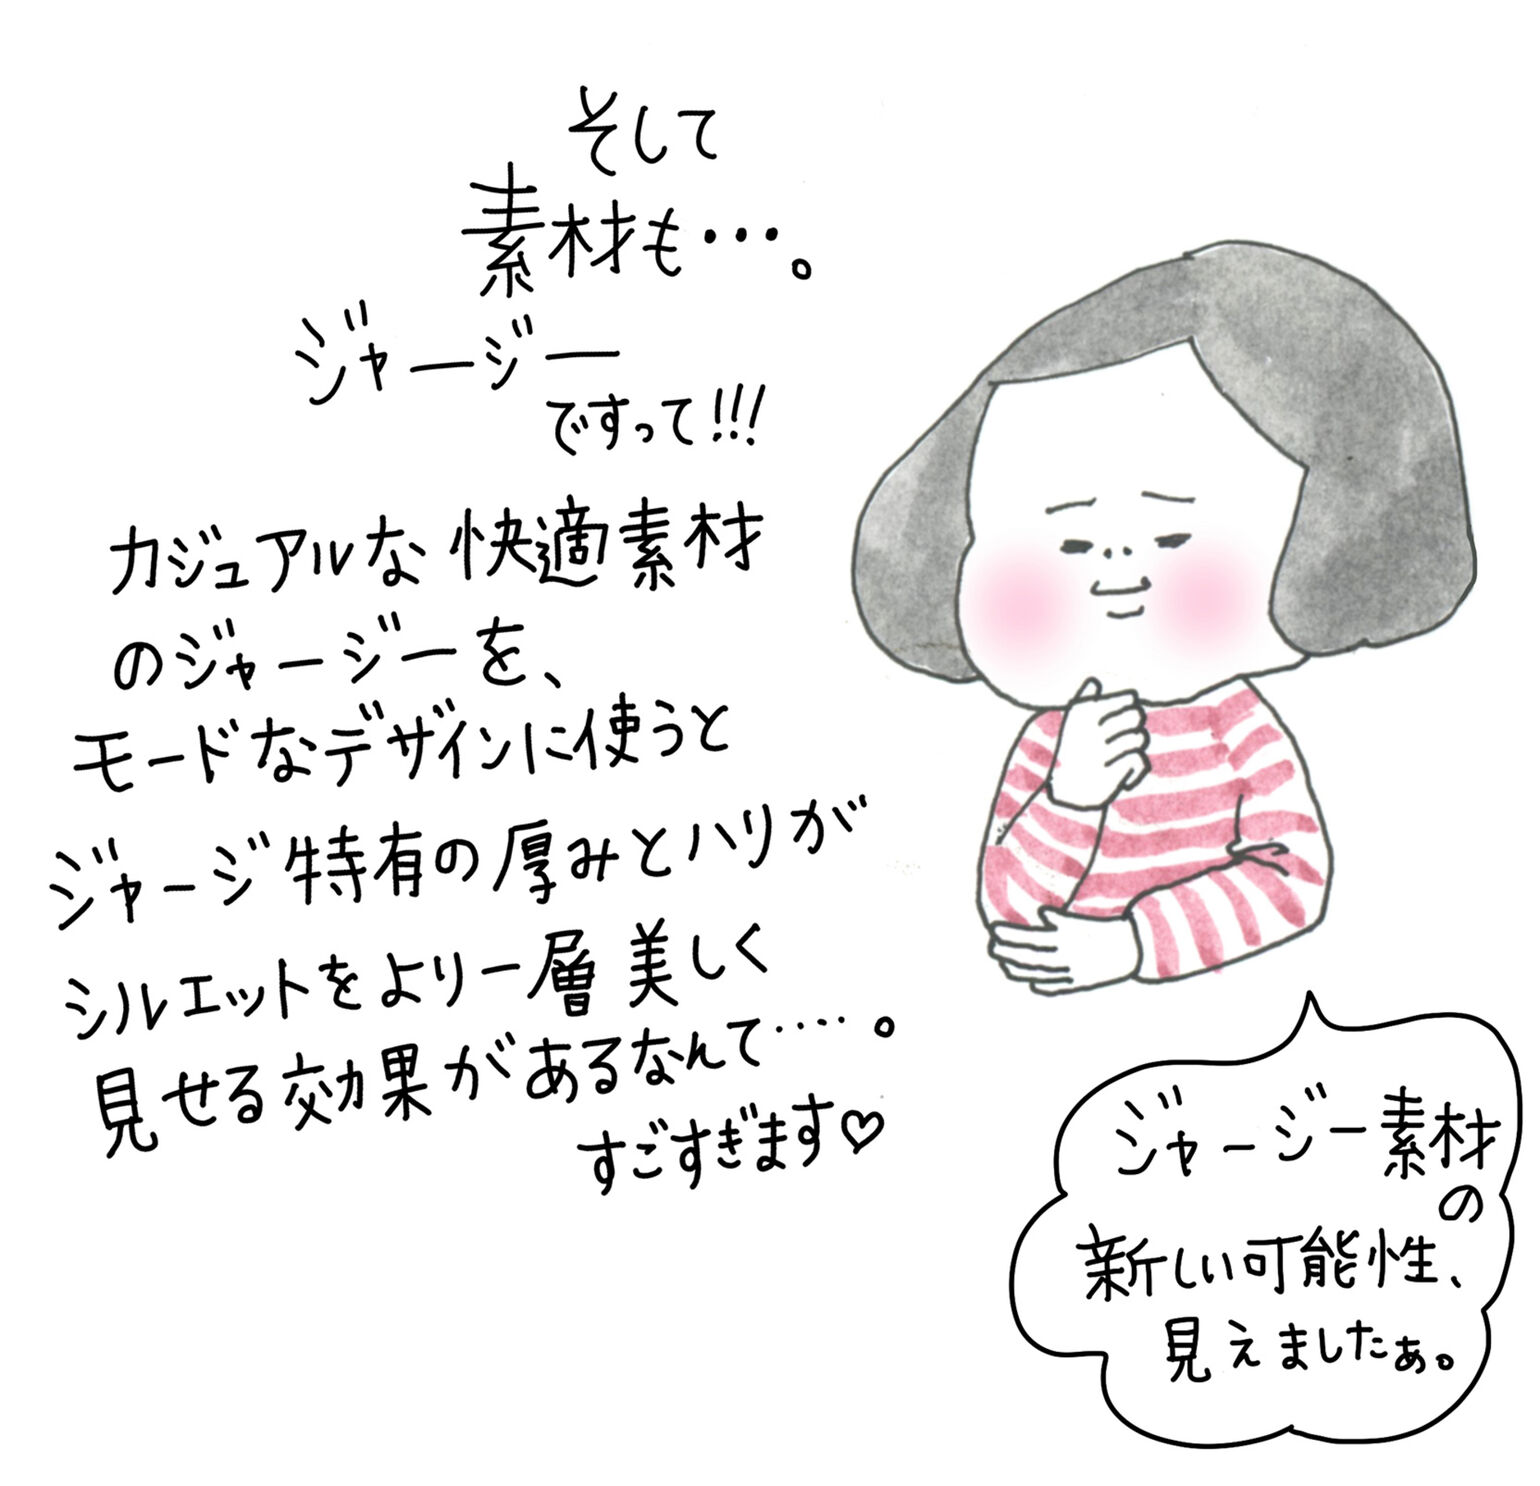 そして
素材も…。
ジャージー
ですって!!!
カジュアルな快適素材
のジャージーを、
モードなデザインに使うと
ジャージ特有の厚みとハリが
シルエットをより一層美しく
見せる効果があるなんて……。
すごすぎます♡
ジャージー素材
の
新しい可能性、
見えましたぁ。